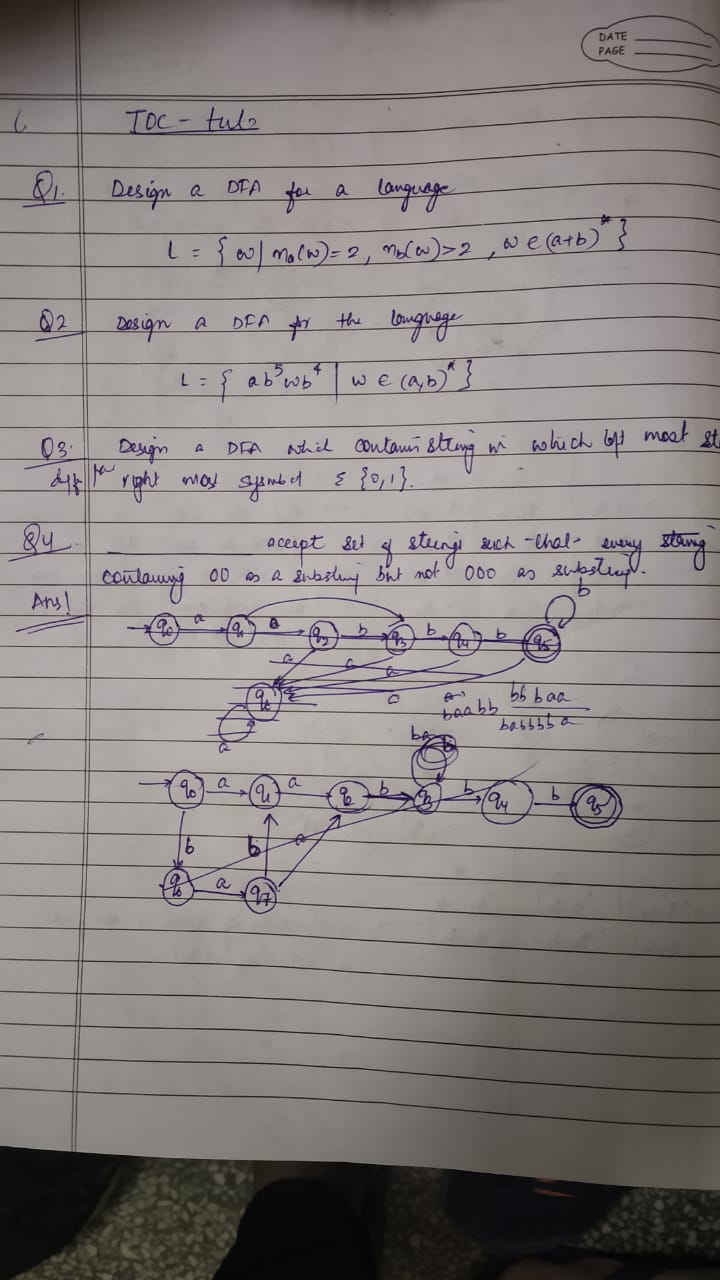 DATE
PAGE
TOC - tut2
Q1. Design a DFA for a language
L = { w | na(w) = 2, nb(w) > 2, w ∈ (a+b)* }
Q2 Design a DFA for the language
L = { ab⁵wb⁴ | w ∈ (a,b)* }
Q3. Design a DFA which contains string in which left most
right most symbol Σ {0,1}.
Q4. accept set of strings such that every string
containing 00 as a substring but not 000 as substring.
Ans!
b
q0 a q1 a q2 b q3 b q4 b q5
a a a a
q6
a
bb baa
baabb babbbba
ba
q0 a q1 a q2 b q3 b q4 b q5
b b a
q6 a q7